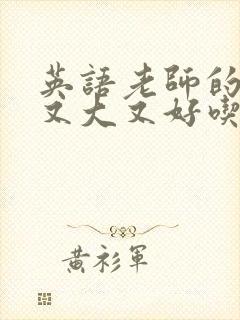 英語老師的
又大又好喫
黃衫軍